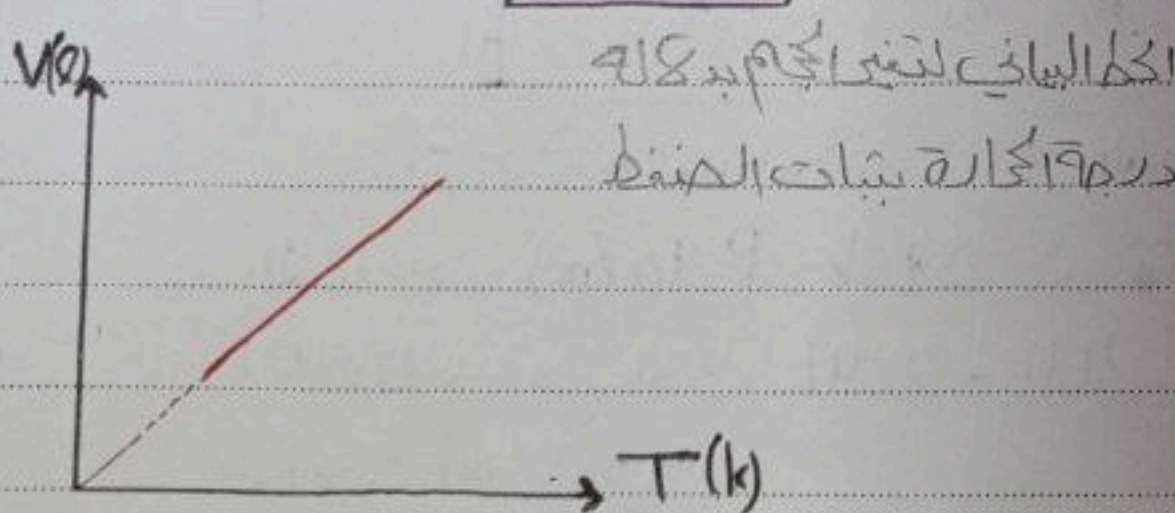 V(l)
الخط البياني لتغير الحجم بدلالة
درجة الحرارة بثبات الضغط
T(k)